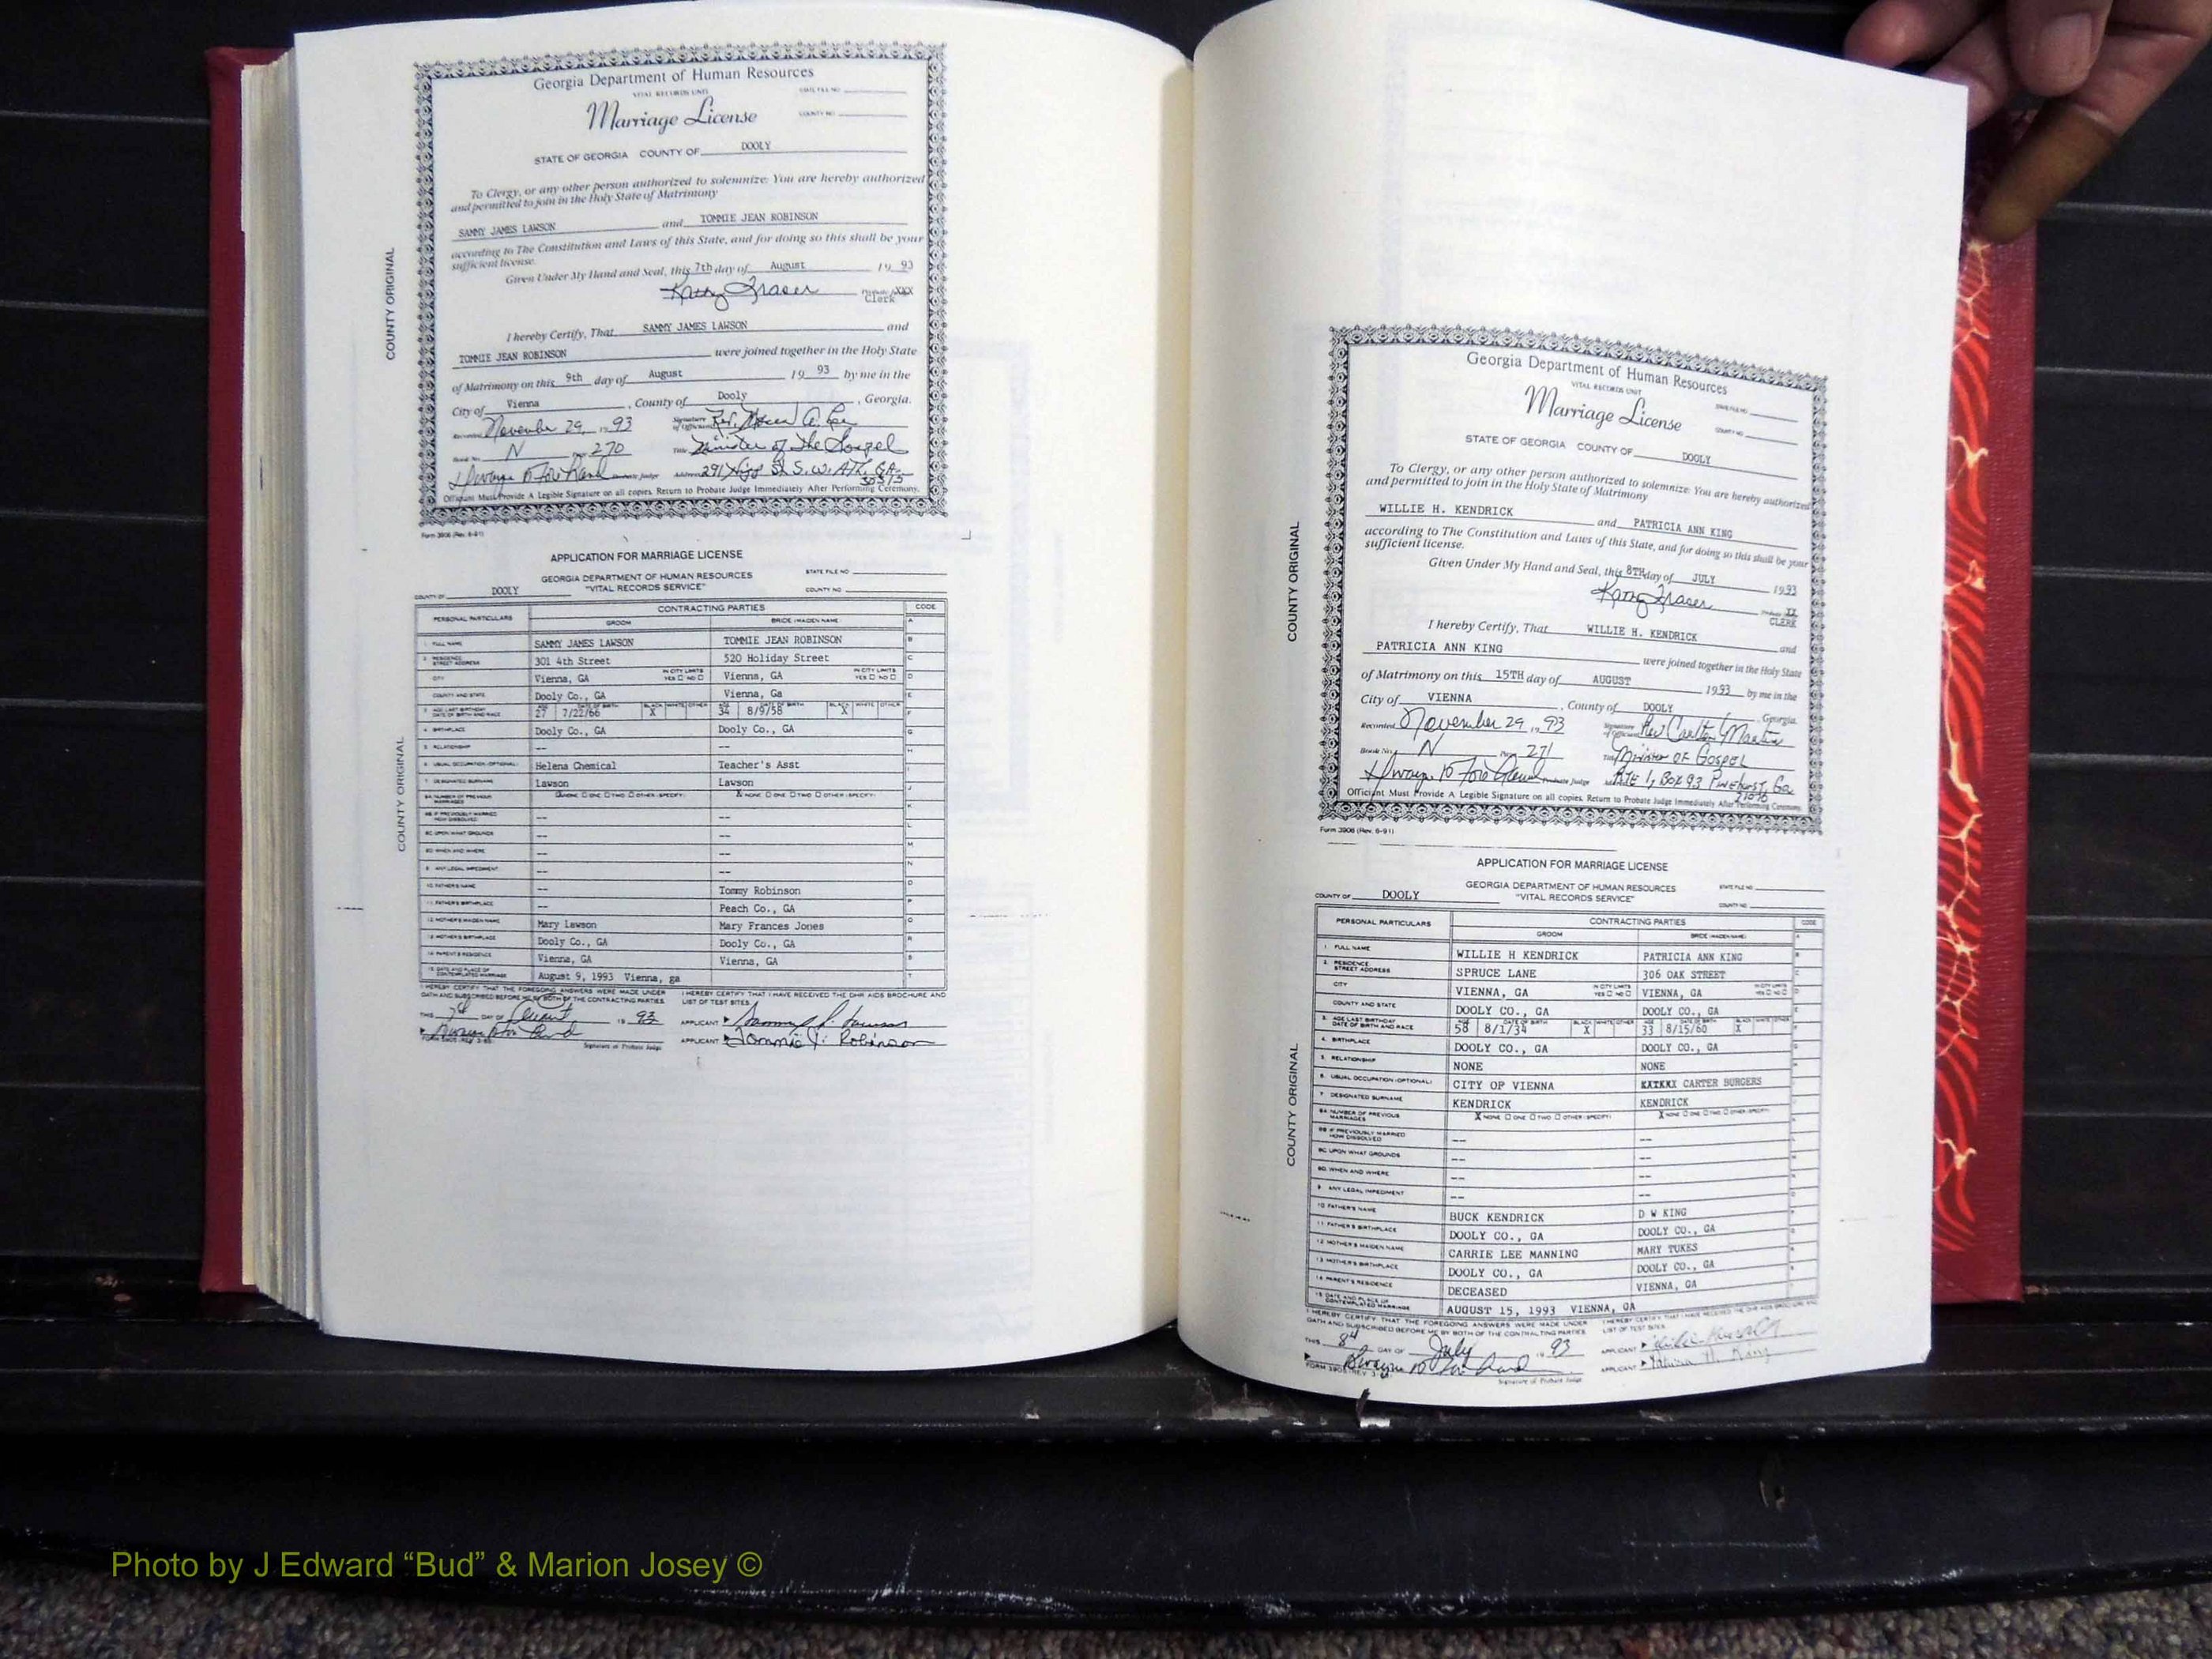 Georgia Department of Human Resources
VITAL RECORDS UNIT
STATE FILE NO.
Marriage License
COUNTY NO.
STATE OF GEORGIA COUNTY OF DOOLY
To Clergy, or any other person authorized to solemnize: You are hereby authorized
and permitted to join in the Holy State of Matrimony
SAMMY JAMES LAWSON and TOMMIE JEAN ROBINSON
according to The Constitution and Laws of this State, and for doing so this shall be your
sufficient license.
Given Under My Hand and Seal, this 7th day of August 19 93
Kathy Fraser Clerk
I hereby Certify, That SAMMY JAMES LAWSON and
TOMMIE JEAN ROBINSON were joined together in the Holy State
of Matrimony on this 9th day of August 19 93 by me in the
City of Vienna, County of Dooly, Georgia.
Recorded November 29, 1993 Signature of Officiant Rev.
Book No. N Page 270 Title Minister of the Gospel
Probate Judge Address 291 St. S.W. Atl. GA. 30313
Officiant Must Provide A Legible Signature on all copies. Return to Probate Judge Immediately After Performing Ceremony.
COUNTY ORIGINAL
Form 3906 (Rev. 6-91)
APPLICATION FOR MARRIAGE LICENSE
GEORGIA DEPARTMENT OF HUMAN RESOURCES STATE FILE NO.
COUNTY OF DOOLY "VITAL RECORDS SERVICE" COUNTY NO.
PERSONAL PARTICULARS CONTRACTING PARTIES CODE
GROOM BRIDE (MAIDEN NAME)
1. FULL NAME SAMMY JAMES LAWSON TOMMIE JEAN ROBINSON
2. RESIDENCE STREET ADDRESS 301 4th Street 520 Holiday Street
CITY Vienna, GA IN CITY LIMITS YES NO Vienna, GA IN CITY LIMITS YES NO
COUNTY AND STATE Dooly Co., GA Vienna, Ga
3. AGE LAST BIRTHDAY DATE OF BIRTH AND RACE 27 7/22/66 X 34 8/9/58 X
4. BIRTHPLACE Dooly Co., GA Dooly Co., GA
5. RELATIONSHIP -- --
6. USUAL OCCUPATION (OPTIONAL) Helena Chemical Teacher's Asst
7. DESIGNATED SURNAME Lawson Lawson
8A. NUMBER OF PREVIOUS MARRIAGES X NONE ONE TWO OTHER (SPECIFY) X NONE ONE TWO OTHER (SPECIFY)
8B. IF PREVIOUSLY MARRIED HOW DISSOLVED -- --
8C. UPON WHAT GROUNDS -- --
8D. WHEN AND WHERE -- --
9. ANY LEGAL IMPEDIMENT -- --
10. FATHER'S NAME -- Tommy Robinson
11. FATHER'S BIRTHPLACE -- Peach Co., GA
12. MOTHER'S MAIDEN NAME Mary Lawson Mary Frances Jones
13. MOTHER'S BIRTHPLACE Dooly Co., GA Dooly Co., GA
14. PARENT'S RESIDENCE Vienna, GA Vienna, GA
15. DATE AND PLACE OF CONTEMPLATED MARRIAGE August 9, 1993 Vienna, ga
I HEREBY CERTIFY THAT THE FOREGOING ANSWERS WERE MADE UNDER OATH AND SUBSCRIBED BEFORE ME BY BOTH OF THE CONTRACTING PARTIES.
I HEREBY CERTIFY THAT I HAVE RECEIVED THE DHR AIDS BROCHURE AND LIST OF TEST SITES.
THIS 7th DAY OF August 19 93 APPLICANT Sammy J. Lawson
APPLICANT Tommie J. Robinson
Signature of Probate Judge
COUNTY ORIGINAL
Georgia Department of Human Resources
VITAL RECORDS UNIT
STATE FILE NO.
Marriage License
COUNTY NO.
STATE OF GEORGIA COUNTY OF DOOLY
To Clergy, or any other person authorized to solemnize: You are hereby authorized
and permitted to join in the Holy State of Matrimony
WILLIE H. KENDRICK and PATRICIA ANN KING
according to The Constitution and Laws of this State, and for doing so this shall be your
sufficient license.
Given Under My Hand and Seal, this 8TH day of JULY 1993
Kathy Fraser CLERK
I hereby Certify, That WILLIE H. KENDRICK and
PATRICIA ANN KING were joined together in the Holy State
of Matrimony on this 15TH day of AUGUST 1993 by me in the
City of VIENNA, County of DOOLY, Georgia.
Recorded November 29, 1993 Signature of Officiant Rev Carlton Martin
Book No. N Page 271 Title Minister OF Gospel
Probate Judge Address RTE 1, Box 93 Pinehurst, Ga
Officiant Must Provide A Legible Signature on all copies. Return to Probate Judge Immediately After Performing Ceremony.
COUNTY ORIGINAL
Form 3906 (Rev. 6-91)
APPLICATION FOR MARRIAGE LICENSE
GEORGIA DEPARTMENT OF HUMAN RESOURCES STATE FILE NO.
COUNTY OF DOOLY "VITAL RECORDS SERVICE" COUNTY NO.
PERSONAL PARTICULARS CONTRACTING PARTIES CODE
GROOM BRIDE (MAIDEN NAME)
1. FULL NAME WILLIE H KENDRICK PATRICIA ANN KING
2. RESIDENCE STREET ADDRESS SPRUCE LANE 306 OAK STREET
CITY VIENNA, GA IN CITY LIMITS YES NO VIENNA, GA IN CITY LIMITS YES NO
COUNTY AND STATE DOOLY CO., GA DOOLY CO., GA
3. AGE LAST BIRTHDAY DATE OF BIRTH AND RACE 58 8/1/34 X 33 8/15/60 X
4. BIRTHPLACE DOOLY CO., GA DOOLY CO., GA
5. RELATIONSHIP NONE NONE
6. USUAL OCCUPATION (OPTIONAL) CITY OF VIENNA CARTER BURGERS
7. DESIGNATED SURNAME KENDRICK KENDRICK
8A. NUMBER OF PREVIOUS MARRIAGES X NONE ONE TWO OTHER (SPECIFY) X NONE ONE TWO OTHER (SPECIFY)
8B. IF PREVIOUSLY MARRIED HOW DISSOLVED -- --
8C. UPON WHAT GROUNDS -- --
8D. WHEN AND WHERE -- --
9. ANY LEGAL IMPEDIMENT -- --
10. FATHER'S NAME BUCK KENDRICK D W KING
11. FATHER'S BIRTHPLACE DOOLY CO., GA DOOLY CO., GA
12. MOTHER'S MAIDEN NAME CARRIE LEE MANNING MARY TUKES
13. MOTHER'S BIRTHPLACE DOOLY CO., GA DOOLY CO., GA
14. PARENT'S RESIDENCE DECEASED VIENNA, GA
15. DATE AND PLACE OF CONTEMPLATED MARRIAGE AUGUST 15, 1993 VIENNA, GA
I HEREBY CERTIFY THAT THE FOREGOING ANSWERS WERE MADE UNDER OATH AND SUBSCRIBED BEFORE ME BY BOTH OF THE CONTRACTING PARTIES
LIST OF TEST SITES.
THIS 8th DAY OF July 1993 APPLICANT
APPLICANT
Signature of Probate Judge
COUNTY ORIGINAL
Photo by J Edward “Bud” & Marion Josey ©